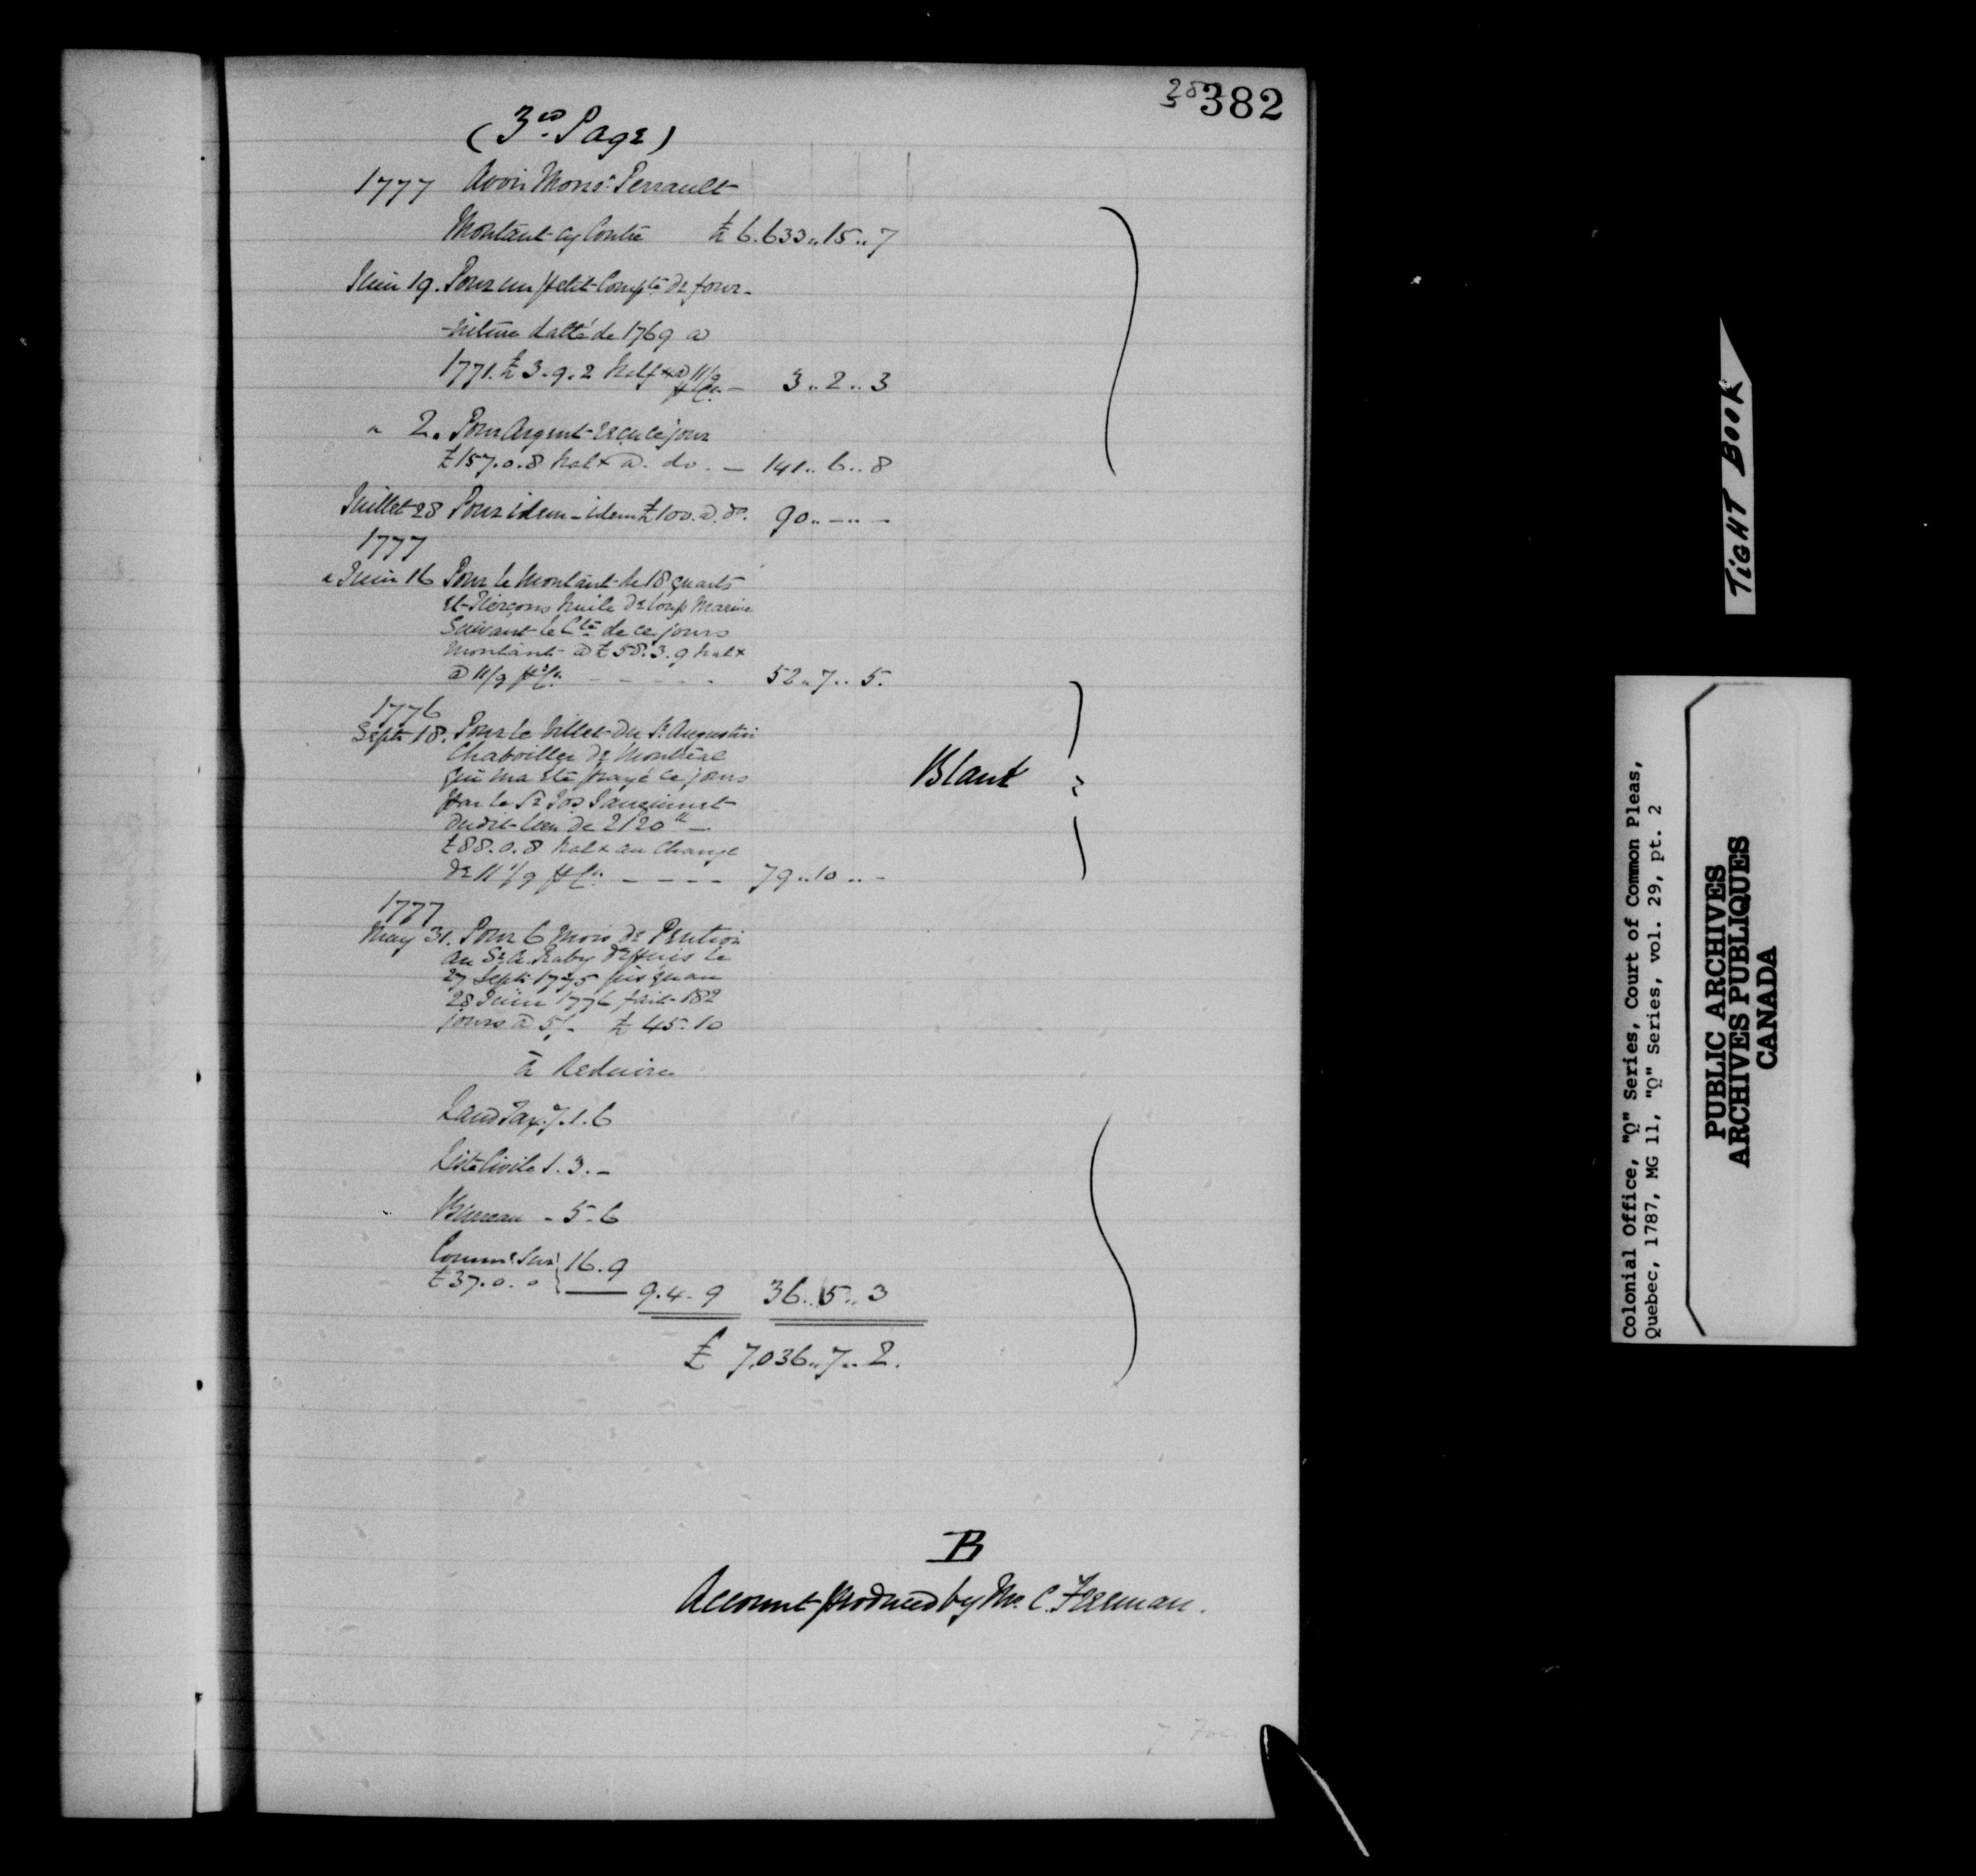 382
(3rd Page)
1777 Avoir Monsr. Perrault
Montant cy Contre £ 6.633..15..7
Juin 19. Pour un petit Compte de four-
-niture datté de 1769 a
1771. £ 3.9.2 halfx @ 11/9
p Ct. — 3..2..3
" 2. Pour Argent reçu ce jour
£157.0.8 halx @. do. — 141..6..8
Juillet 28 Pour idem - idem £ 100. @. do. 90..—..—
1777
" Juin 16 Pour le Montant de 18 quarts
et Tierçons huile de loup Marin
Suivant le Cte de ce jours
montant a £ 58.3.9 halx
@ 11/9 p Ct. - - - - - 52..7..5.
1776
Septr 18. Pour le billet du Sr. Augustin
Chaboillez de Montréal
qui ma été payé ce jours
par le Sr Jos Sanguinet
dudit lieu de 2120 tt —
£88.0.8 halx au Change
de 11 1/9 p Ct. - - - - 79..10..-
Blank
1777
May 31. Pour 6 Mois de Pention
au Sr. A. Raby depuis le
27 Septr 1775 jusquau
28 Juin 1776 fait 182
jours a 5/- £ 45.10
à Reduire
Land Tax. 7.1.6
Liste Civile 1.3.-
Bureau - 5.6
Comme. Sur } 16.9
£37.0.0
9.4.9 36..5..3
£ 7.036..7..2.
B
Account produced by Mr. C. Freeman.
TIGHT BOOK
Colonial Office, "Q" Series, Court of Common Pleas,
Quebec, 1787, MG 11, "Q" Series, vol. 29, pt. 2
PUBLIC ARCHIVES
ARCHIVES PUBLIQUES
CANADA